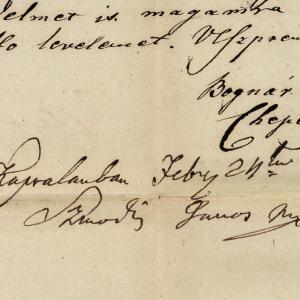 elmet is magamra
lo levelemet. Veszprem
Bognár
Chep
Kapralanban Febr 24
Szmodis Janos